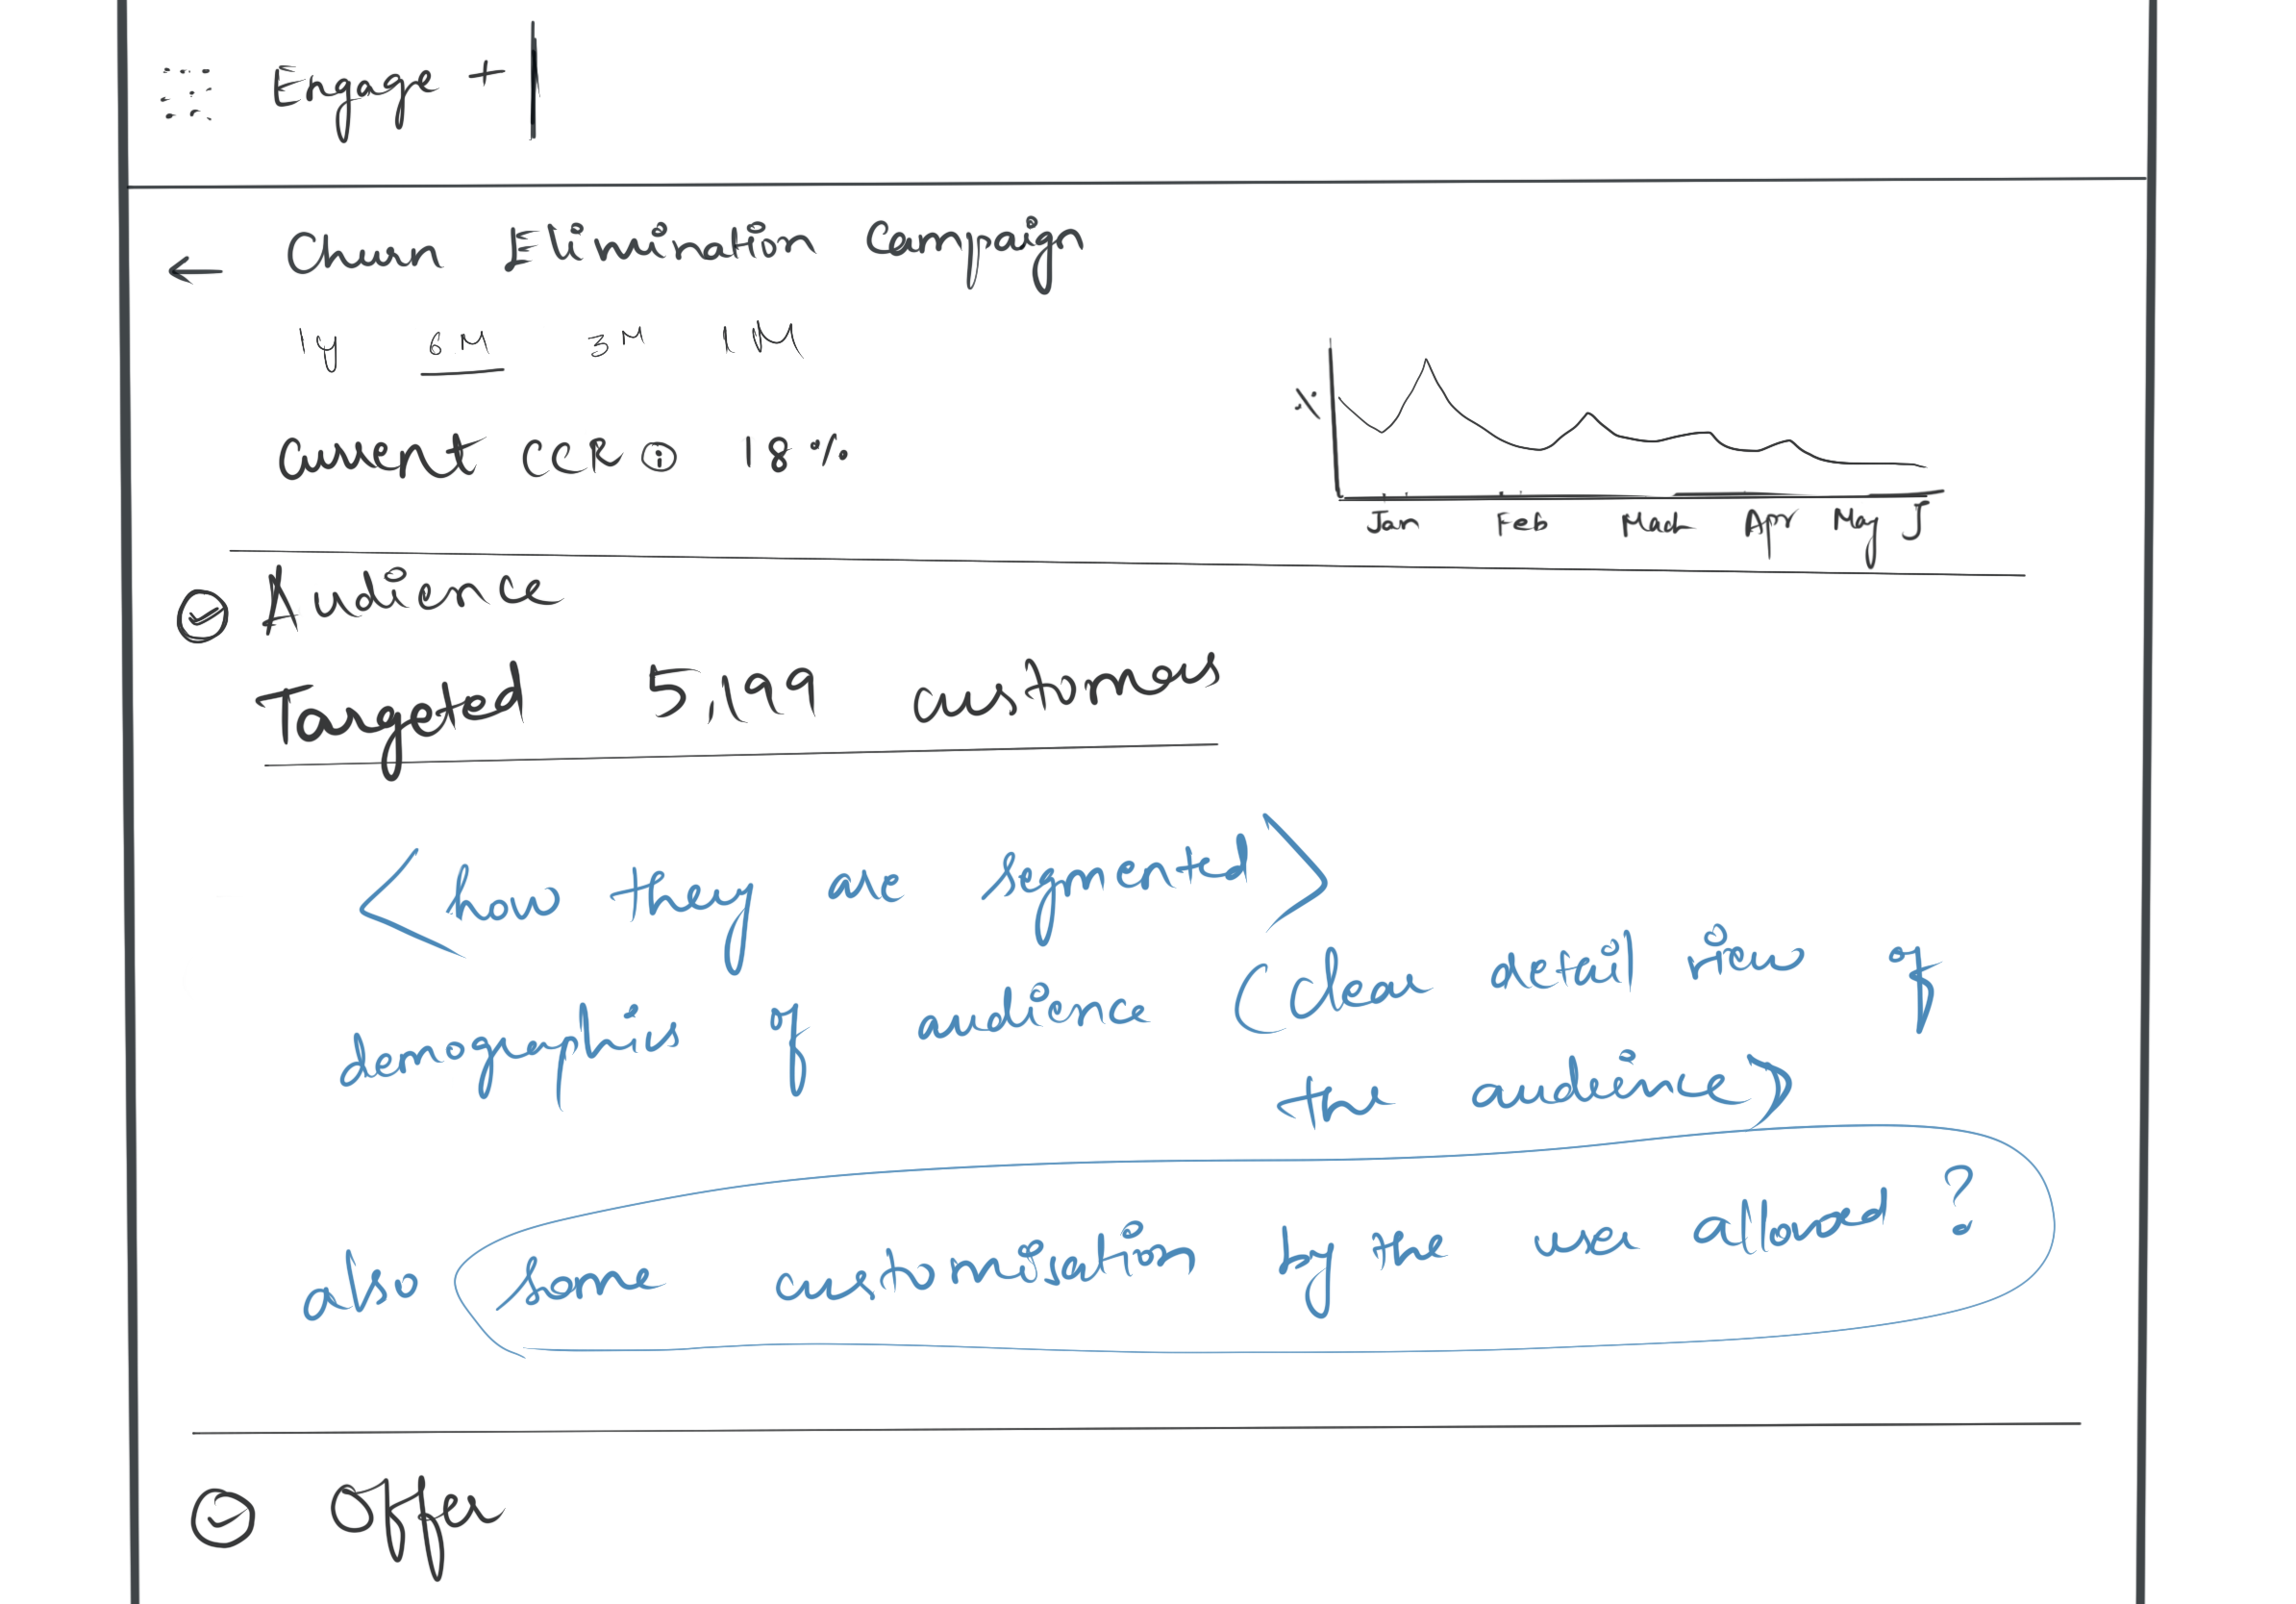 Engage +
← Churn Elimination Campaign
1y 6M 3M 1M
Current CCR i 18%
%
Jan Feb March Apr May J
Audience
Targeted 5,199 customers
<how they are segmented>
demographics of audience (Clear detail view of
the audience)
also some customisation by the user allowed ?
Offer